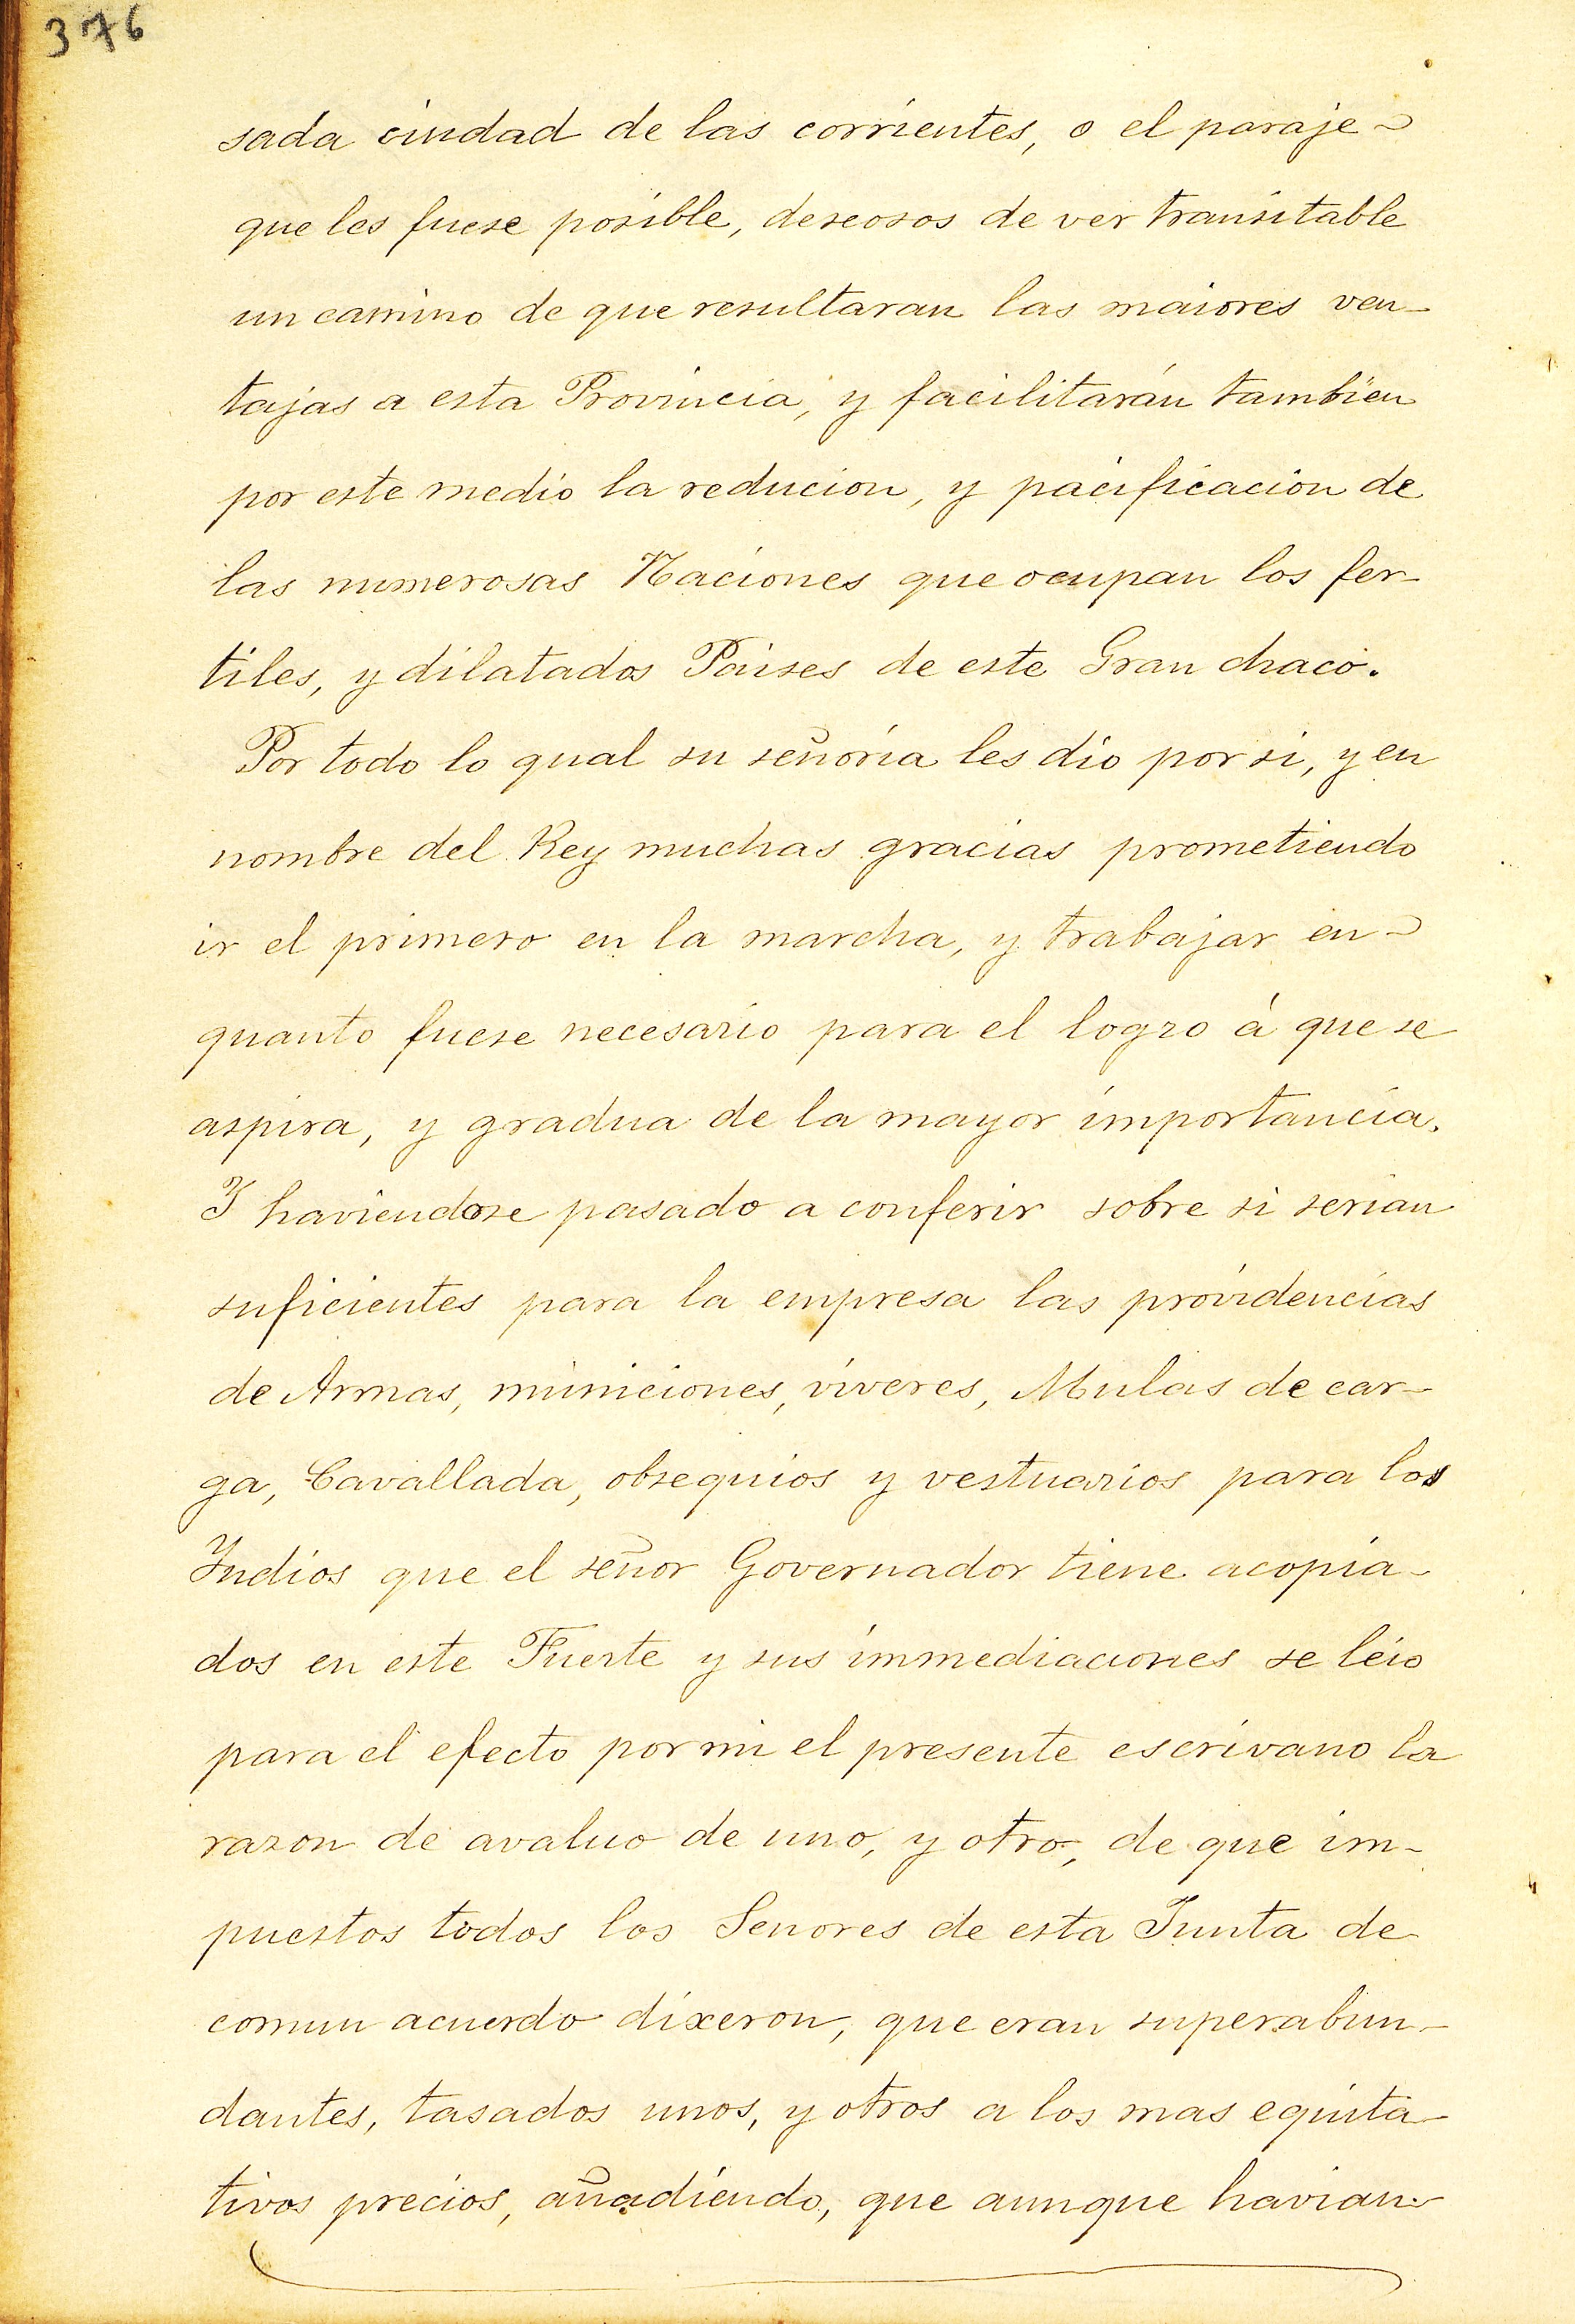 376
sada ciudad de las corrientes, o el paraje
que les fuese posible, deseosos de ver transitable
un camino de que resultaran las maiores ven-
tajas a esta Provincia, y facilitarán tambien
por este medio la reducion, y pacificacion de
las numerosas Naciones que ocupan los fer-
tiles, y dilatados Paises de este Gran chaco.
Por todo lo qual su señoria les dio por si, y en
nombre del Rey muchas gracias prometiendo
ir el primero en la marcha, y trabajar en
quanto fuese necesario para el logro á que se
aspira, y gradua de la mayor importancia.
I haviendose pasado a conferir sobre si serian
suficientes para la empresa las providencias
de Armas, municiones, viveres, Mulas de car-
ga, Cavallada, obsequios y vestuarios para los
Indios que el señor Governador tiene acopia-
dos en este Fuerte y sus immediaciones se leio
para el efecto por mi el presente escrivano la
razon de avaluo de uno, y otro, de que im-
puestos todos los Senores de esta Junta de
comun acuerdo dixeron, que eran superabun-
dantes, tasados unos, y otros a los mas equita-
tivos precios, añadiendo, que aunque havian